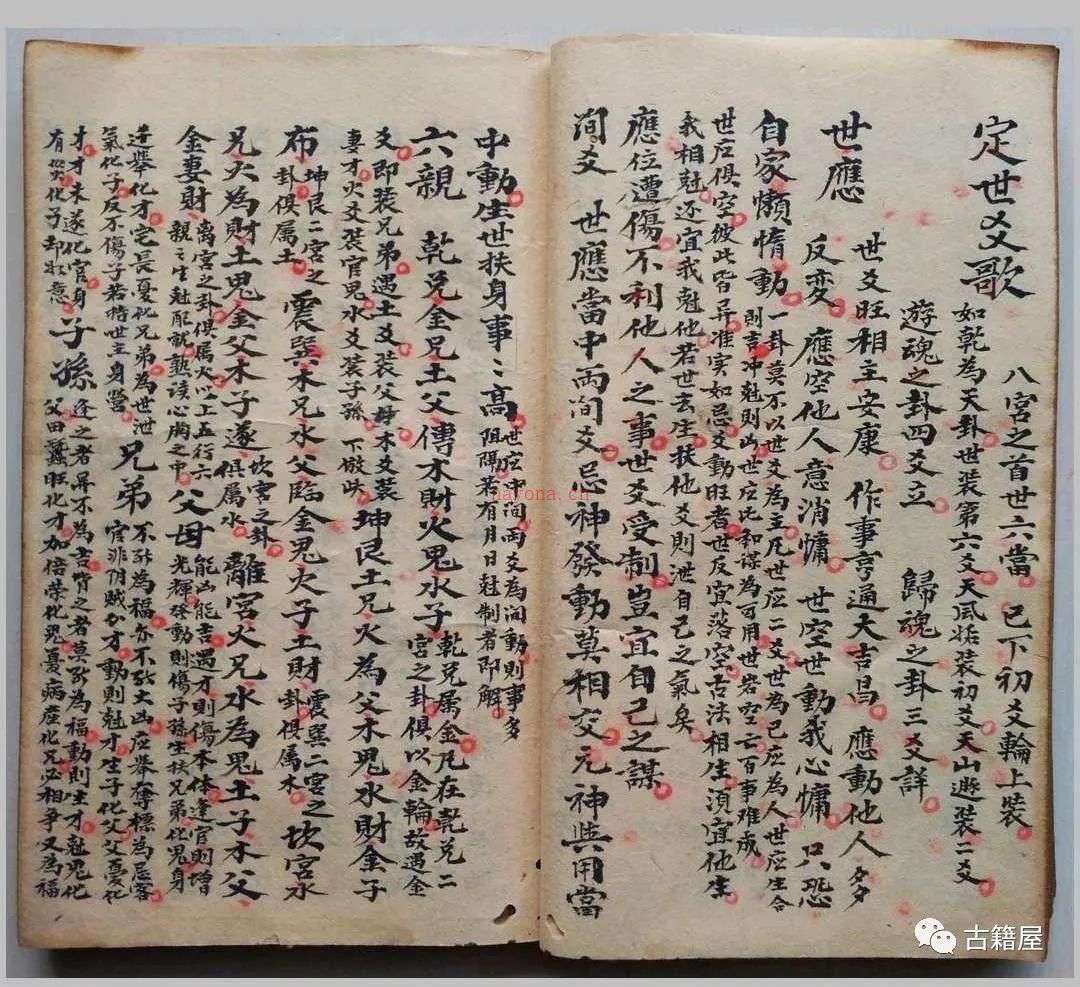 定世爻歌 八宮之首世六當 已下初爻輪上裝
如乾為天卦世裝第六爻天風姤裝初爻天山遯裝二爻
遊魂之卦四爻立 歸魂之卦三爻詳
世應 世爻旺相主安康 作事亨通大吉昌 應動他人多
反变 應空他人意消慵 世空世動我心慵 只恐
自家懶惰動 一卦莫不以世爻為主凡世应二爻世為己应為人世应生合
則吉冲尅則凶世应比和謀為可用世若空亡百事难成
世应俱空彼此皆异准实如忌爻動旺者世反宜落空古法相生須宜他生
我相尅还宜我尅他若世去生扶他爻則泄自己之氣矣
應位遭傷不利他人之事世爻受制豈宜自己之謀
间爻 世應當中两间爻忌神發動莫相交元神與用當
中動生世扶身事々高 世应中间两爻為间動則事多
阻隔若有月日尅制者即解
六親 乾兑金兄土父傳木財火鬼水子 乾兑属金凡在乾兑二
宮之卦俱以金輪故遇金
爻即装兄弟遇土爻装父母木爻装
妻才火爻装官鬼水爻装子孫 下倣此 坤艮土兄火為父木鬼水財金子
布 坤艮二宮之
卦俱属土 震巽木兄水父臨金鬼火子土財 震巽二宮之
卦俱属木 坎宮水
兄火為財土鬼金父木子遂 坎宮之卦
俱属水 離宮火兄水為鬼土子木父
金妻財 离宮之卦俱属火以上五行六
親之生尅配就熟读心胸之中 父母 能凶能吉遇才則傷本体逢官則增
光輝發動則傷子孫生扶兄弟化鬼身
迍舉化才宅長憂化兄弟為世泄
氣化子反不傷子若持世主身勞 兄弟 不能為福亦不能大凶应舉奪標為忌客
官非阴贼分才動則尅才生子化父父憂化
才才未遂化官身
有災化子却称意 子孫 逢之者昇不為吉背之者莫能為福動則生才尅鬼化
父田蠶旺化才加倍荣化鬼憂病産化兄必相争又為福
nayona.cn
古籍屋